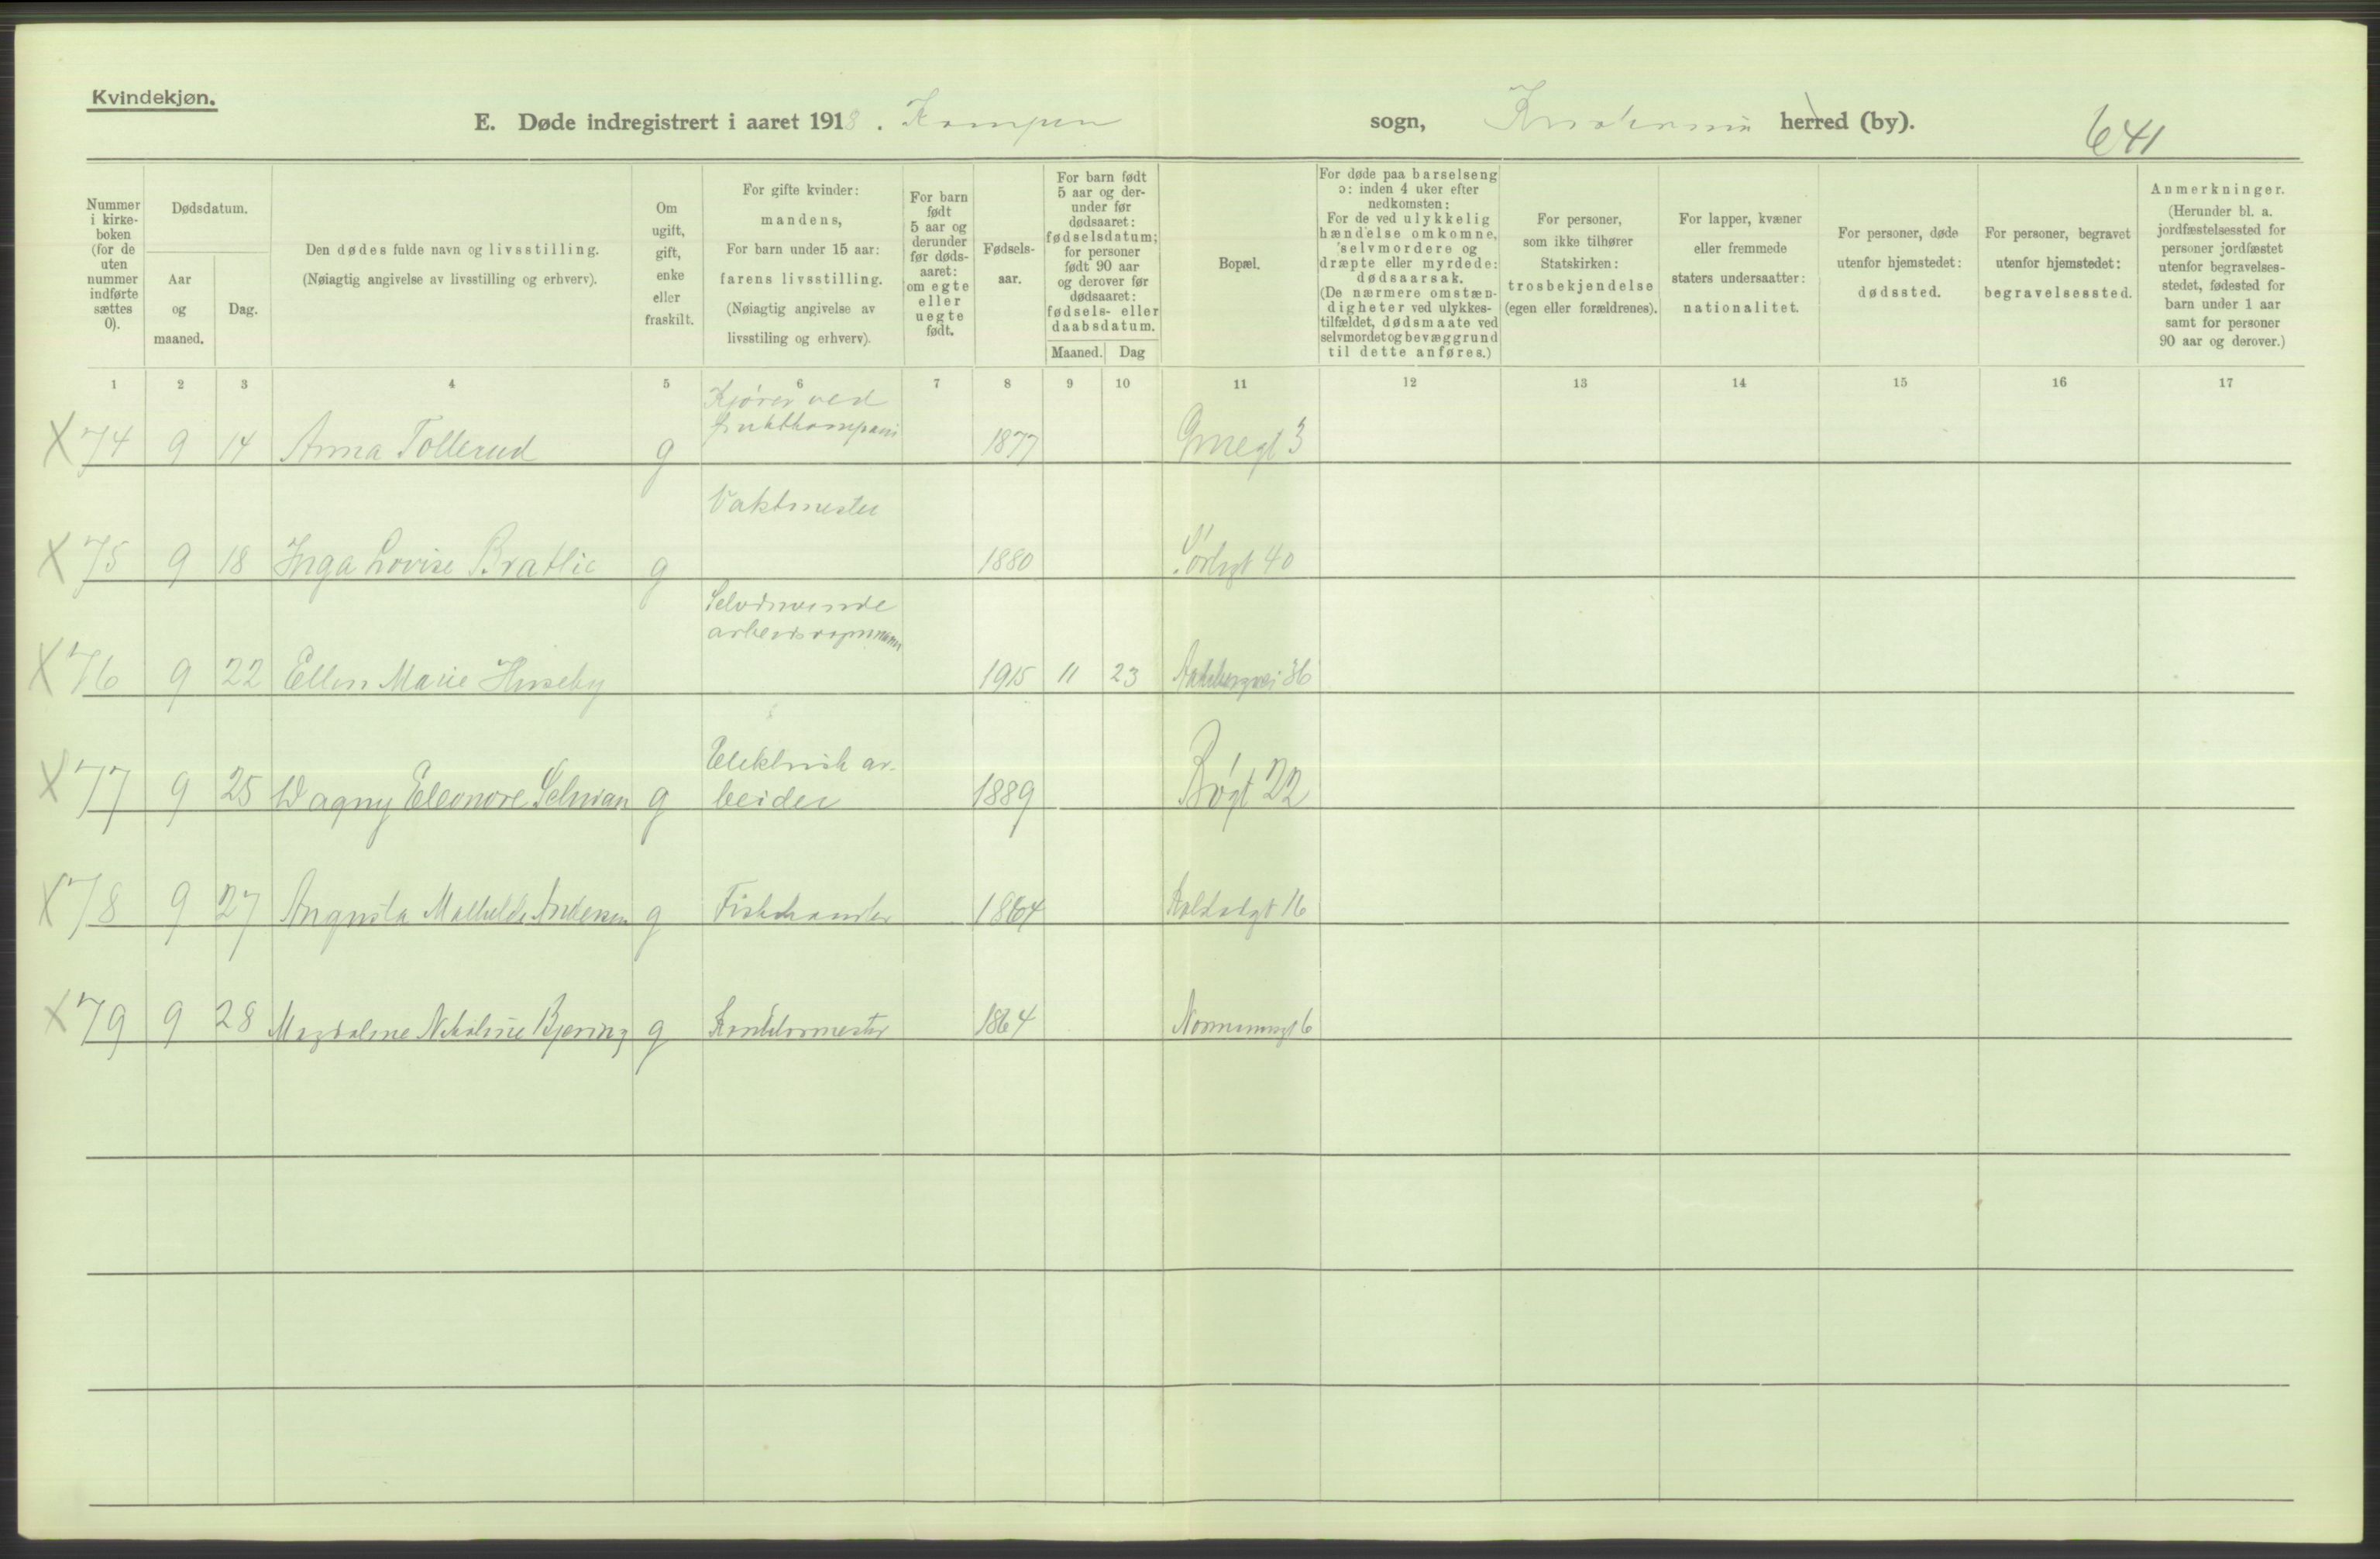 Kvindekjøn.
E. Døde indregistrert i aaret 1918. Kampen sogn, Kristiania herred (by). 641
Nummer i kirke-boken (for de uten nummer indførte sættes 0).
Dødsdatum.
Aar og maaned.
Dag.
Den dødes fulde navn og livsstilling.
(Nøiagtig angivelse av livsstilling og erhverv).
Om ugift, gift, enke eller fraskilt.
For gifte kvinder: mandens,
For barn under 15 aar: farens livsstilling.
(Nøiagtig angivelse av livsstiling og erhverv).
For barn født 5 aar og derunder før døds-aaret: om egte eller uegte født.
Fødsels-aar.
For barn født 5 aar og der-under før dødsaaret: fødselsdatum; for personer født 90 aar og derover før dødsaaret: fødsels- eller daabsdatum.
Maaned. Dag
Bopæl.
For døde paa barselseng ɔ: inden 4 uker efter nedkomsten:
For de ved ulykkelig hændelse omkomne, selvmordere og dræpte eller myrdede: dødsaarsak.
(De nærmere omstæn-digheter ved ulykkes-tilfældet, dødsmaate ved selvmordet og bevæggrund til dette anføres.)
For personer, som ikke tilhører Statskirken: trosbekjendelse (egen eller forældrenes).
For lapper, kvæner eller fremmede staters undersaatter: nationalitet.
For personer, døde utenfor hjemstedet: dødssted.
For personer, begravet utenfor hjemstedet: begravelsessted.
Anmerkninger.
(Herunder bl. a. jordfæstelsessted for personer jordfæstet utenfor begravelses-stedet, fødested for barn under 1 aar samt for personer 90 aar og derover.)
1 2 3 4 5 6 7 8 9 10 11 12 13 14 15 16 17
Kjører ved
X 74 9 14 Anna Tollerud g 1877 3
Vaktmester
X 75 9 18 Inga Lovise Bratlie g 1880 Sørligt 40
Selvstændende
X 76 9 22 Ellen Marie Huseby 1915 11 23 Aakebergvei 36
Elektrisk ar-
X 77 9 25 Wagny Eleonore Selwan g beider 1889 Bøgt 22
X 78 9 27 Augusta Mathilde Andersen g Fiskehandler 1864 16
X 79 9 28 Magdalene Nikoline Bjering g Konduktørmester 1864 Normannsgt 6